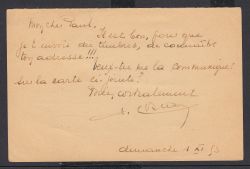 Mon cher Paul,
Il est bon, pour que
je t'envoie des timbres, de connaître
ton adresse!!!
Veux-tu me la communiquer
sur la carte ci-jointe?
cordialement
dimanche 1 XI 53